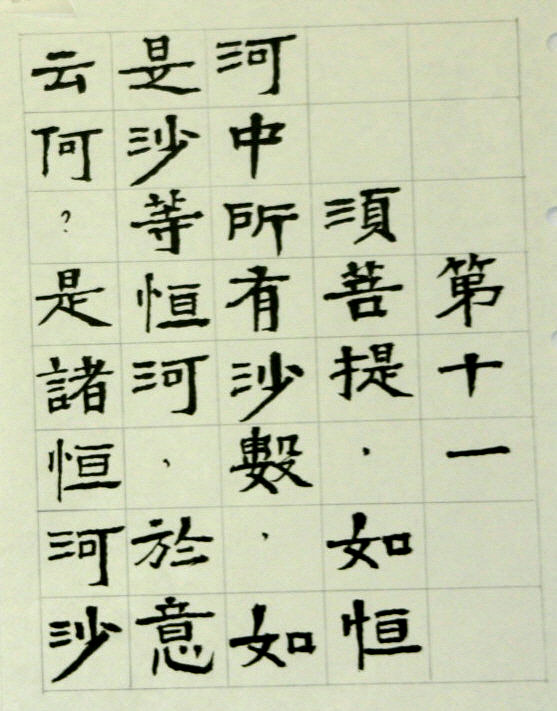 第十一
湏菩提，如恒
河中所有沙數，如
是沙等恒河，於意
云何？是諸恒河沙